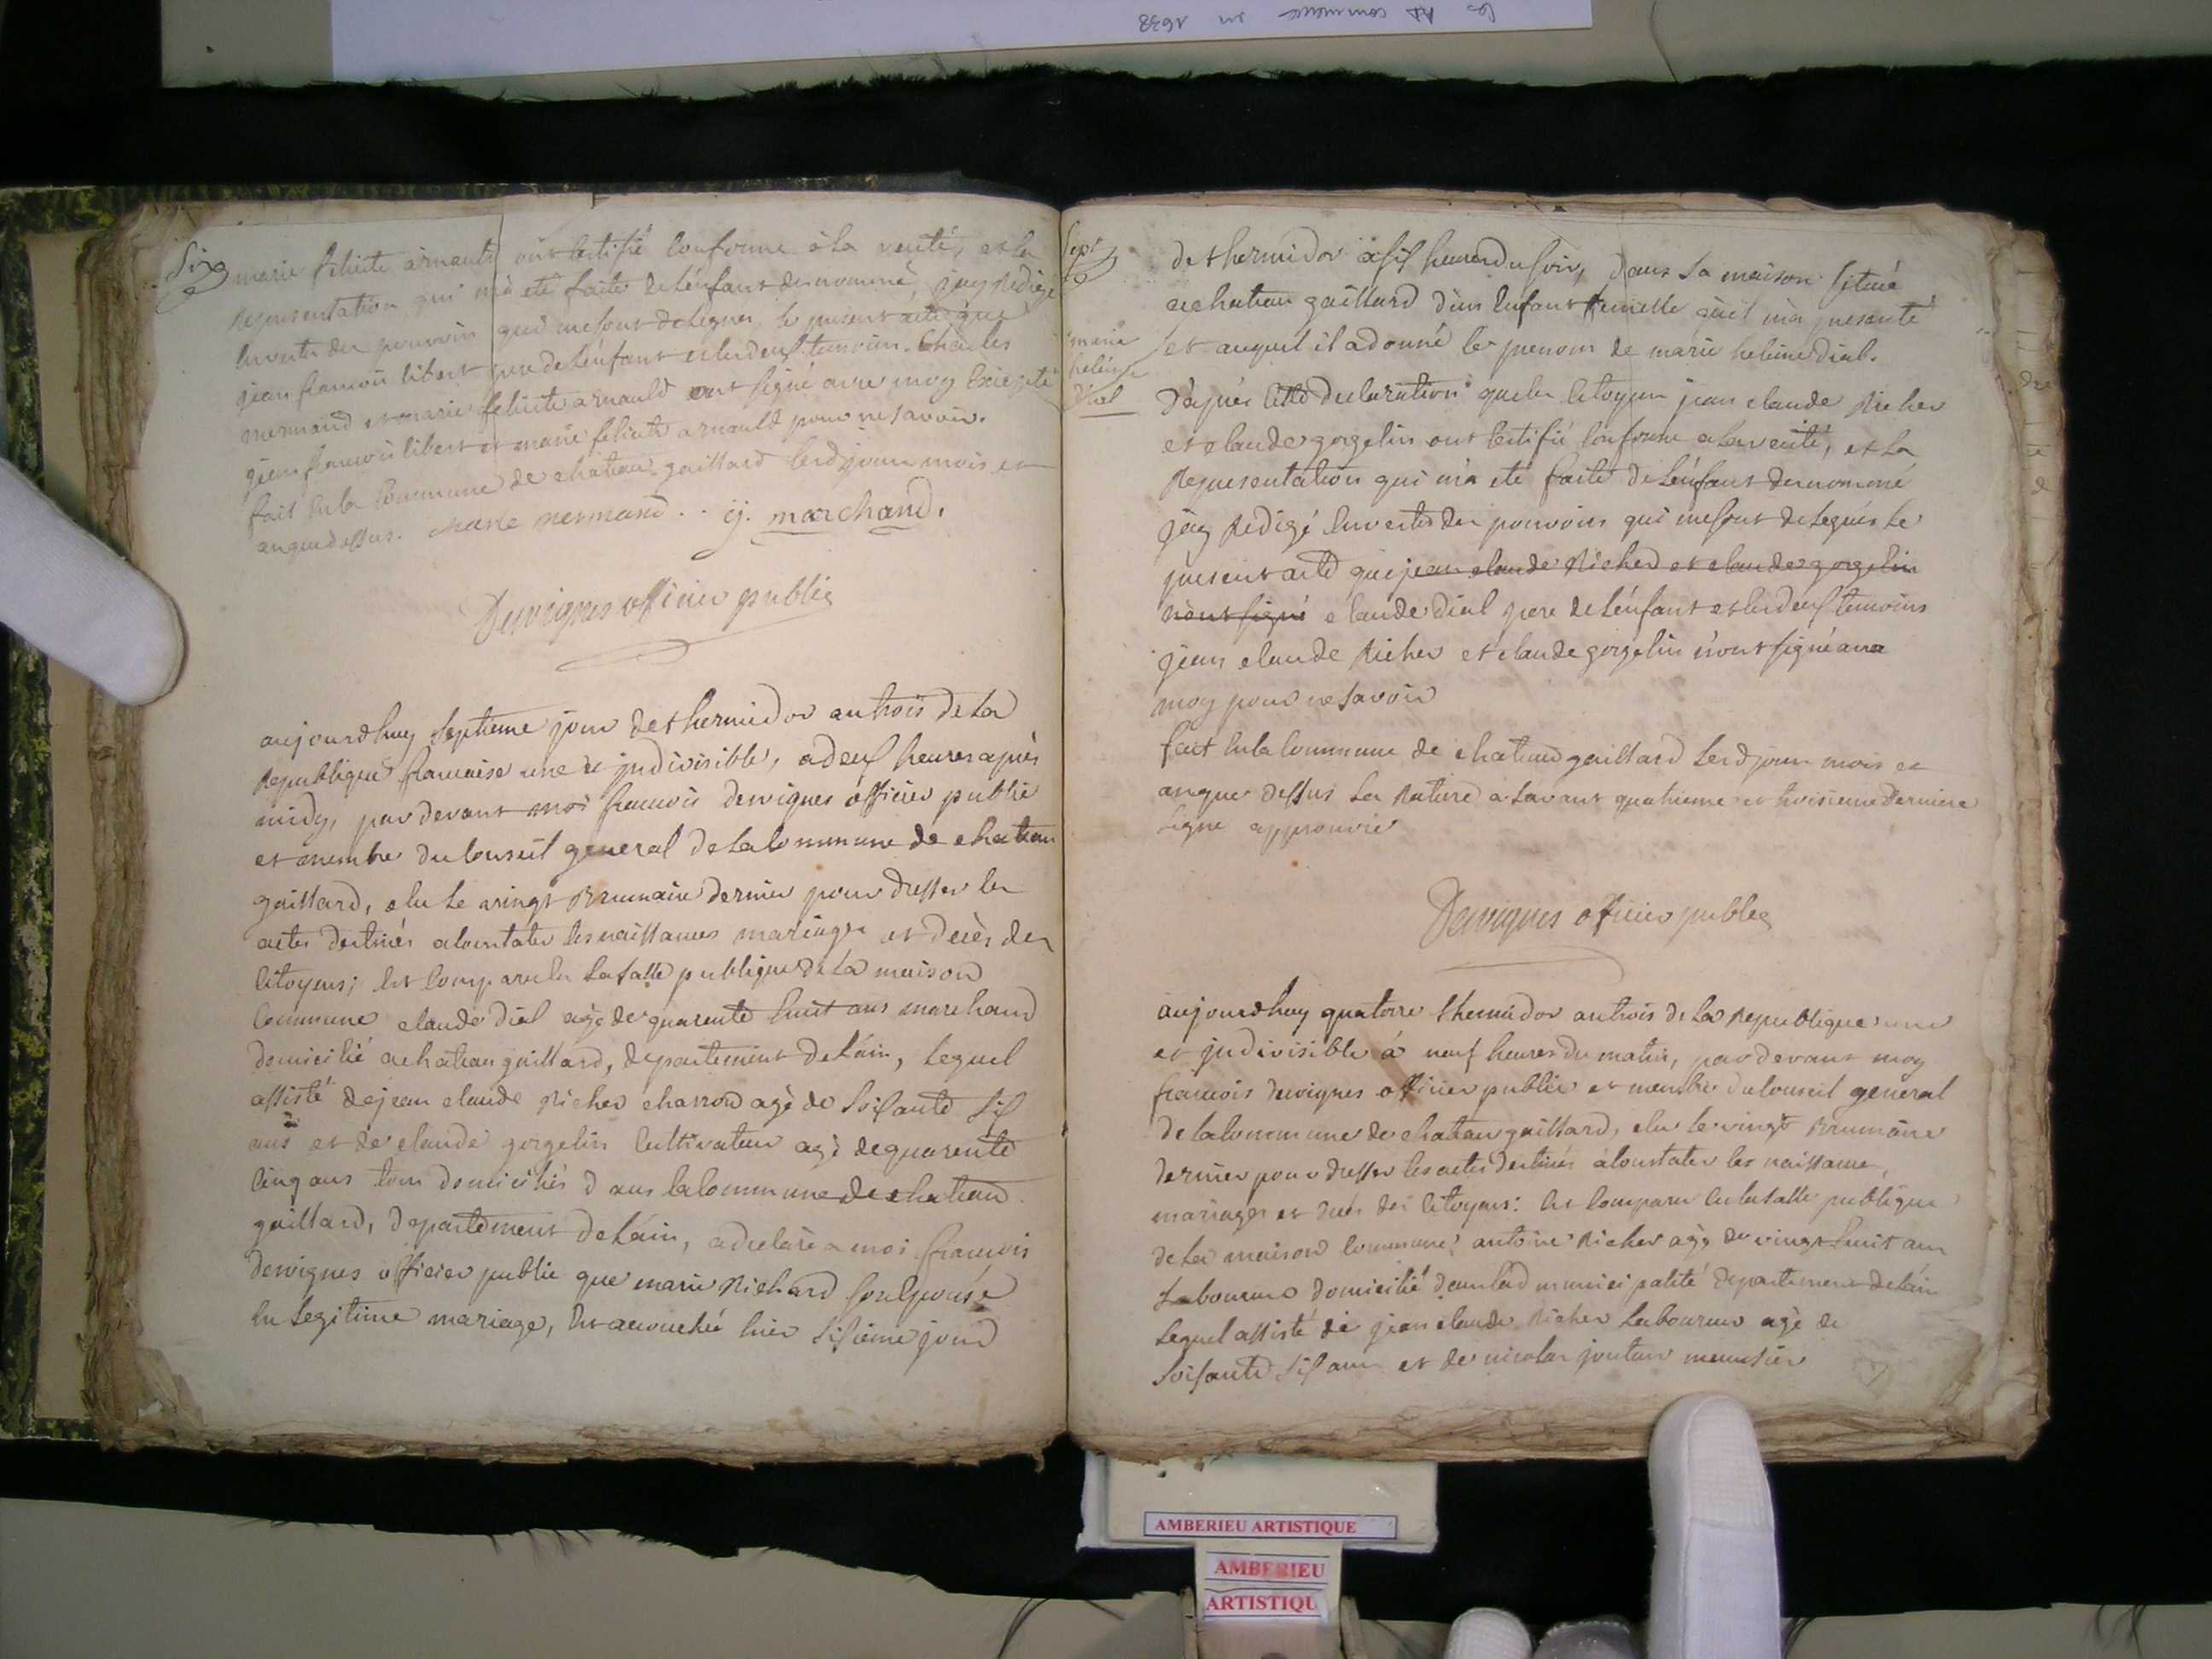 les commence en 1638
Six
marie felicité arnauld ont certifié conforme à la verité, et la
Representation qui m'a eté faite de l'énfant denommé, j'ay Redigé
en vertu des pouvoirs qui me sont delegués, le present acte que
jean francois libert pere de l'énfant et les deux temoins Charles
mermand et marie felicité arnauld ont signé avec moy Excepté
jean francois libert et marie felicité arnauld pour ne savoir.
fait en la Commune de chateau gaillard lesd jour mois et
an que dessus. charle mermand.. cj. marchand.
Dervignes officier public
aujourdhuy septieme jour de thermidor an trois de La
Republique francaise une et jndivisible, a deux heures après
midy, par devant moi francois dervignes officier public
et membre du conseil general de la commune de chateau
gaillard, elu le vingt Brumaire dernier pour dresser les
actes destinés a constater les naissances mariages et decès des
citoyens; est comparu en la salle publique de La maison
Commune claude dial agé de quarente huit ans marchand
domicilié a chateau gaillard, departement de l'ain, lequel
assisté de jean claude Richer charron agé de soisante six
ans et de claude gorgelin cultivateur agé de quarente
cinq ans tous domiciliés dans la commune de chateau
gaillard, departement de l'ain, a declaré a moi francois
dervignes officier public que marie Richard son Epouse
en legitime mariage, est accouchée hier sixieme jour
Sept
marie
helène
dial
de thermidor à six heures du soir, dans sa maison située
a chateau gaillard d'un Enfant femelle qu'il m'a presenté
et auquel il a donné le prenom de marie helene dial.
D'après cette declaration que les citoyens jean claude Richer
et claude gorgelin ont certifié conforme a la verité, et La
Representation qui m'a eté faite de l'énfant denommé
j'ay Redigé en vertu des pouvoirs qui me sont delegués le
present acte que jean claude Richer et claude gorgelin
n'ont signé claude dial pere de l'énfant et les deux temoins
jean claude Richer et claude gorgelin n'ont signé avec
moy pour ne savoir
fait en la Commune de chateau gaillard lesd jour mois et
an que dessus La Rature a lavant quatrieme et troisieme derniere
Ligne approuvée
Dervignes officier public
aujourdhuy quatorze thermidor an trois de La Republique une
et jndivisible à neuf heures du matin, par devant moy
francois dervignes officier public et membre du conseil general
de la commune de chateau gaillard, elu le vingt Brumaire
dernier pour dresser les actes destinés à constater les naissances,
mariages et decés des citoyens: est comparu en la salle publique
de La maison Commune, antoine Richer agé de vingt huit ans
Laboureur domicilié dans lad municipalité departement de l'ain
Lequel assisté de jean claude Richer Laboureur agé de
soisante six ans et de nicolas menusier
AMBERIEU ARTISTIQUE
AMBERIEU
ARTISTIQU